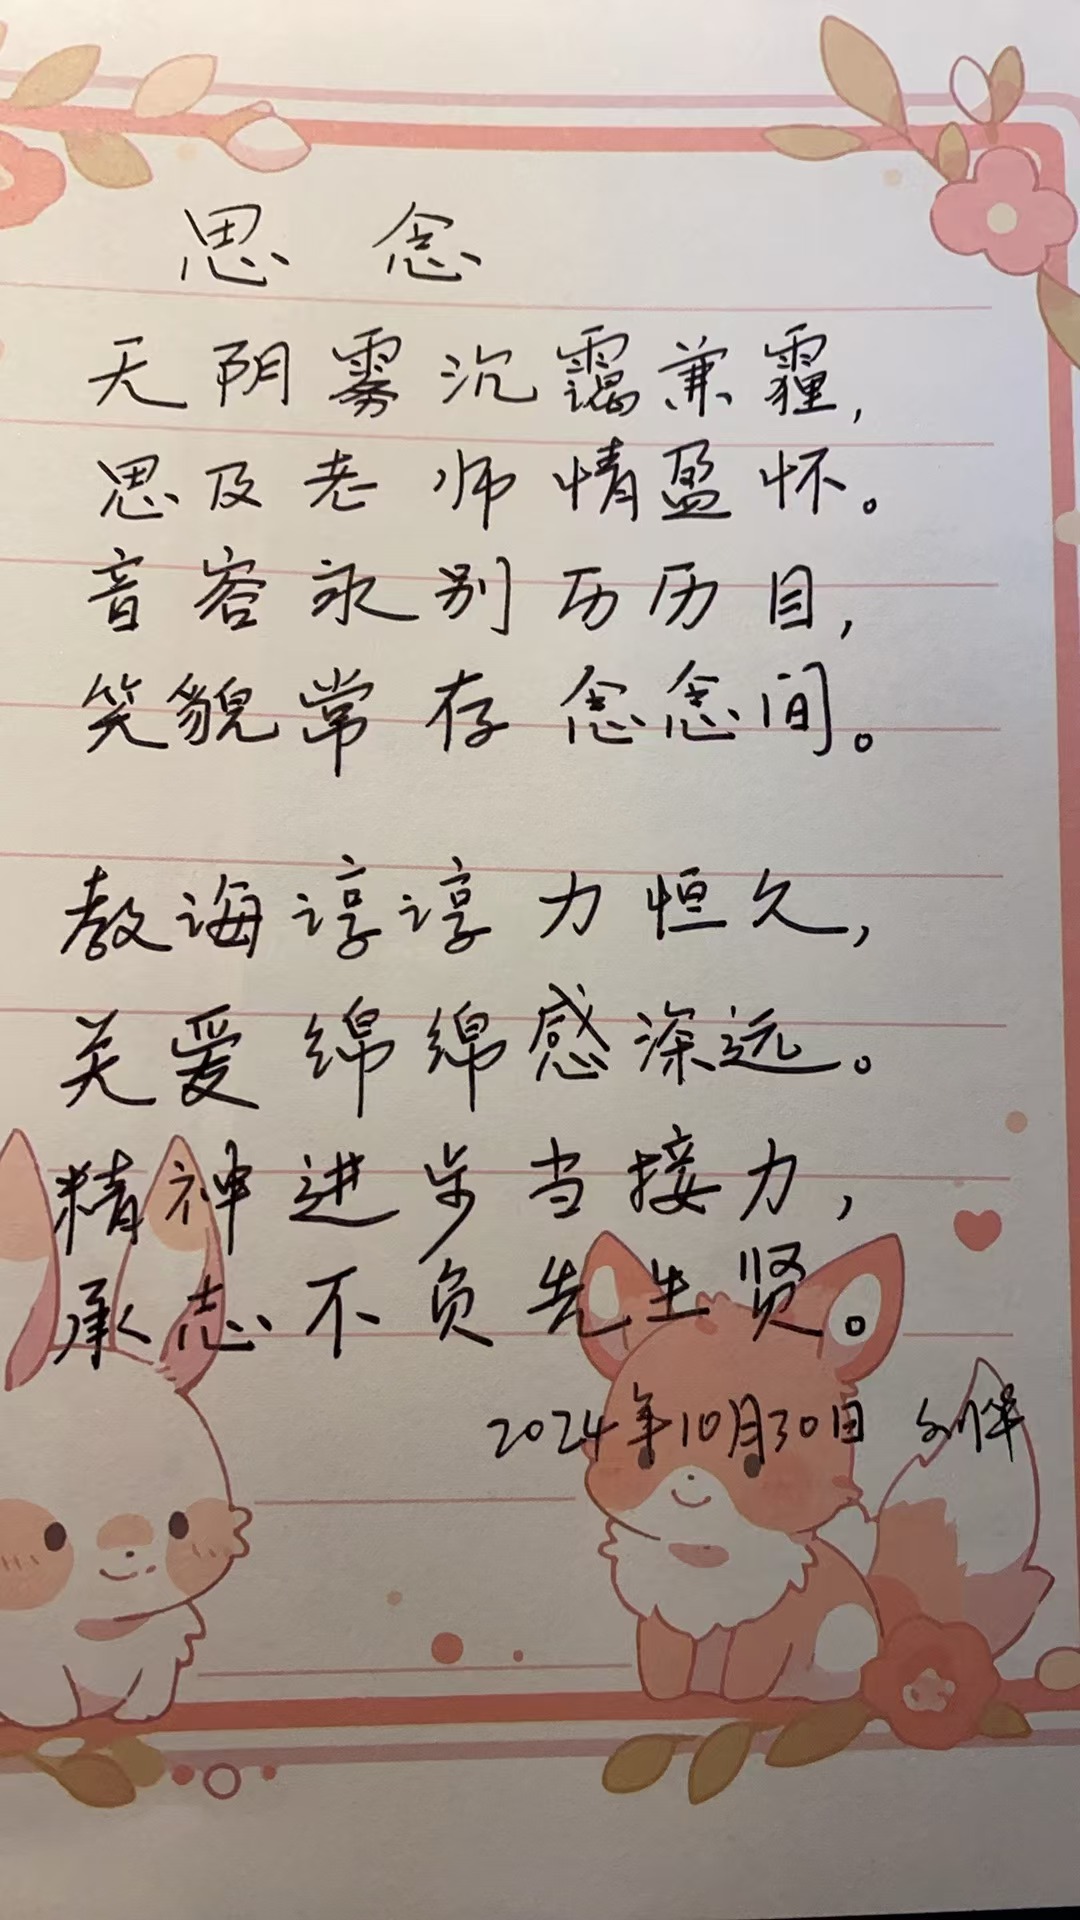 思念
天阴雾沉霭兼霾,
思及老师情盈怀。
音容永别历历目,
笑貌常存念念间。
教诲谆谆力恒久,
关爱绵绵感深远。
精神进步当接力,
承志不负先生贤。
2024年10月30日